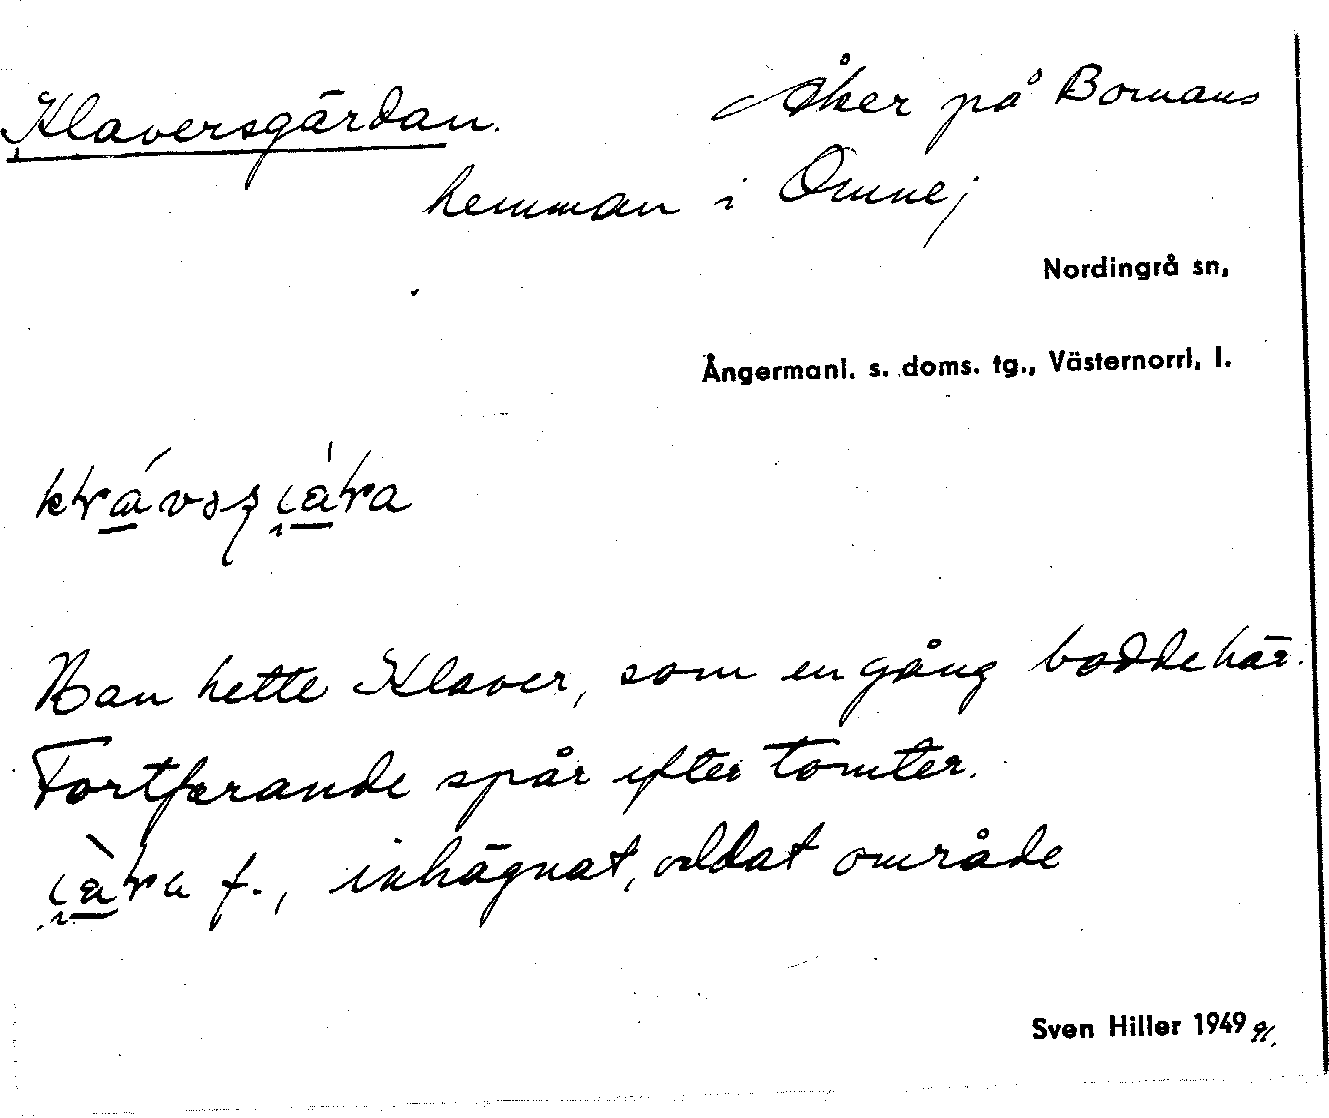 Klaversgärdan. Åker på Bornans
hemman i Omne,
Nordingrå sn,
Ångermanl. s. doms. tg., Västernorrl, l.
Man hette Klaver, som en gång bodde här.
Fortfarande spår efter tomter.
f., inhägnat, odlat område
Sven Hiller 1949